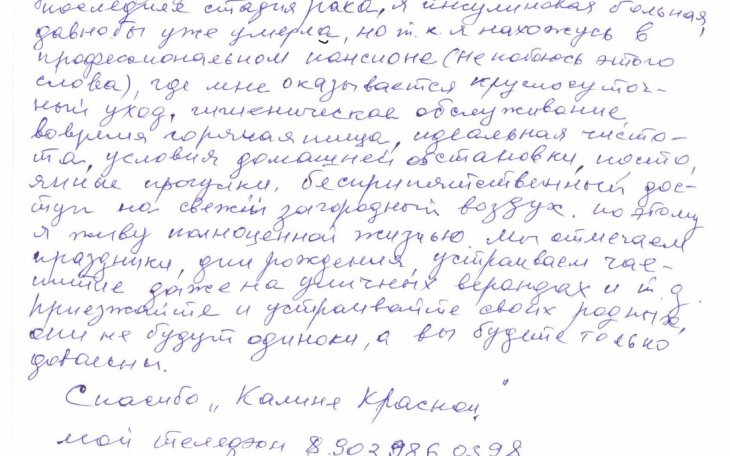 последняя стадия рака, я инсулиновая больная,
давно бы уже умерла, но т.к. я нахожусь в
профессиональном пансионе (не побоюсь этого
слова), где мне оказывается круглосуточ-
ный уход, гигиеническое обслуживание,
вовремя горячая пища, идеальная чисто-
та, условия домашней обстановки, посто,
янные прогулки, беспрепятственный дос-
туп на свежий загородный воздух. поэтому
я живу полноценной жизнью. Мы отмечаем
праздники, дни рождения, устраиваем чае-
питие даже на уличных верандах и т.д.
приезжайте и устраивайте своих родных,
они не будут одиноки, а вы будете только
довольны.
Спасибо „Калине Красной"
мой телефон 8 903 986 0398